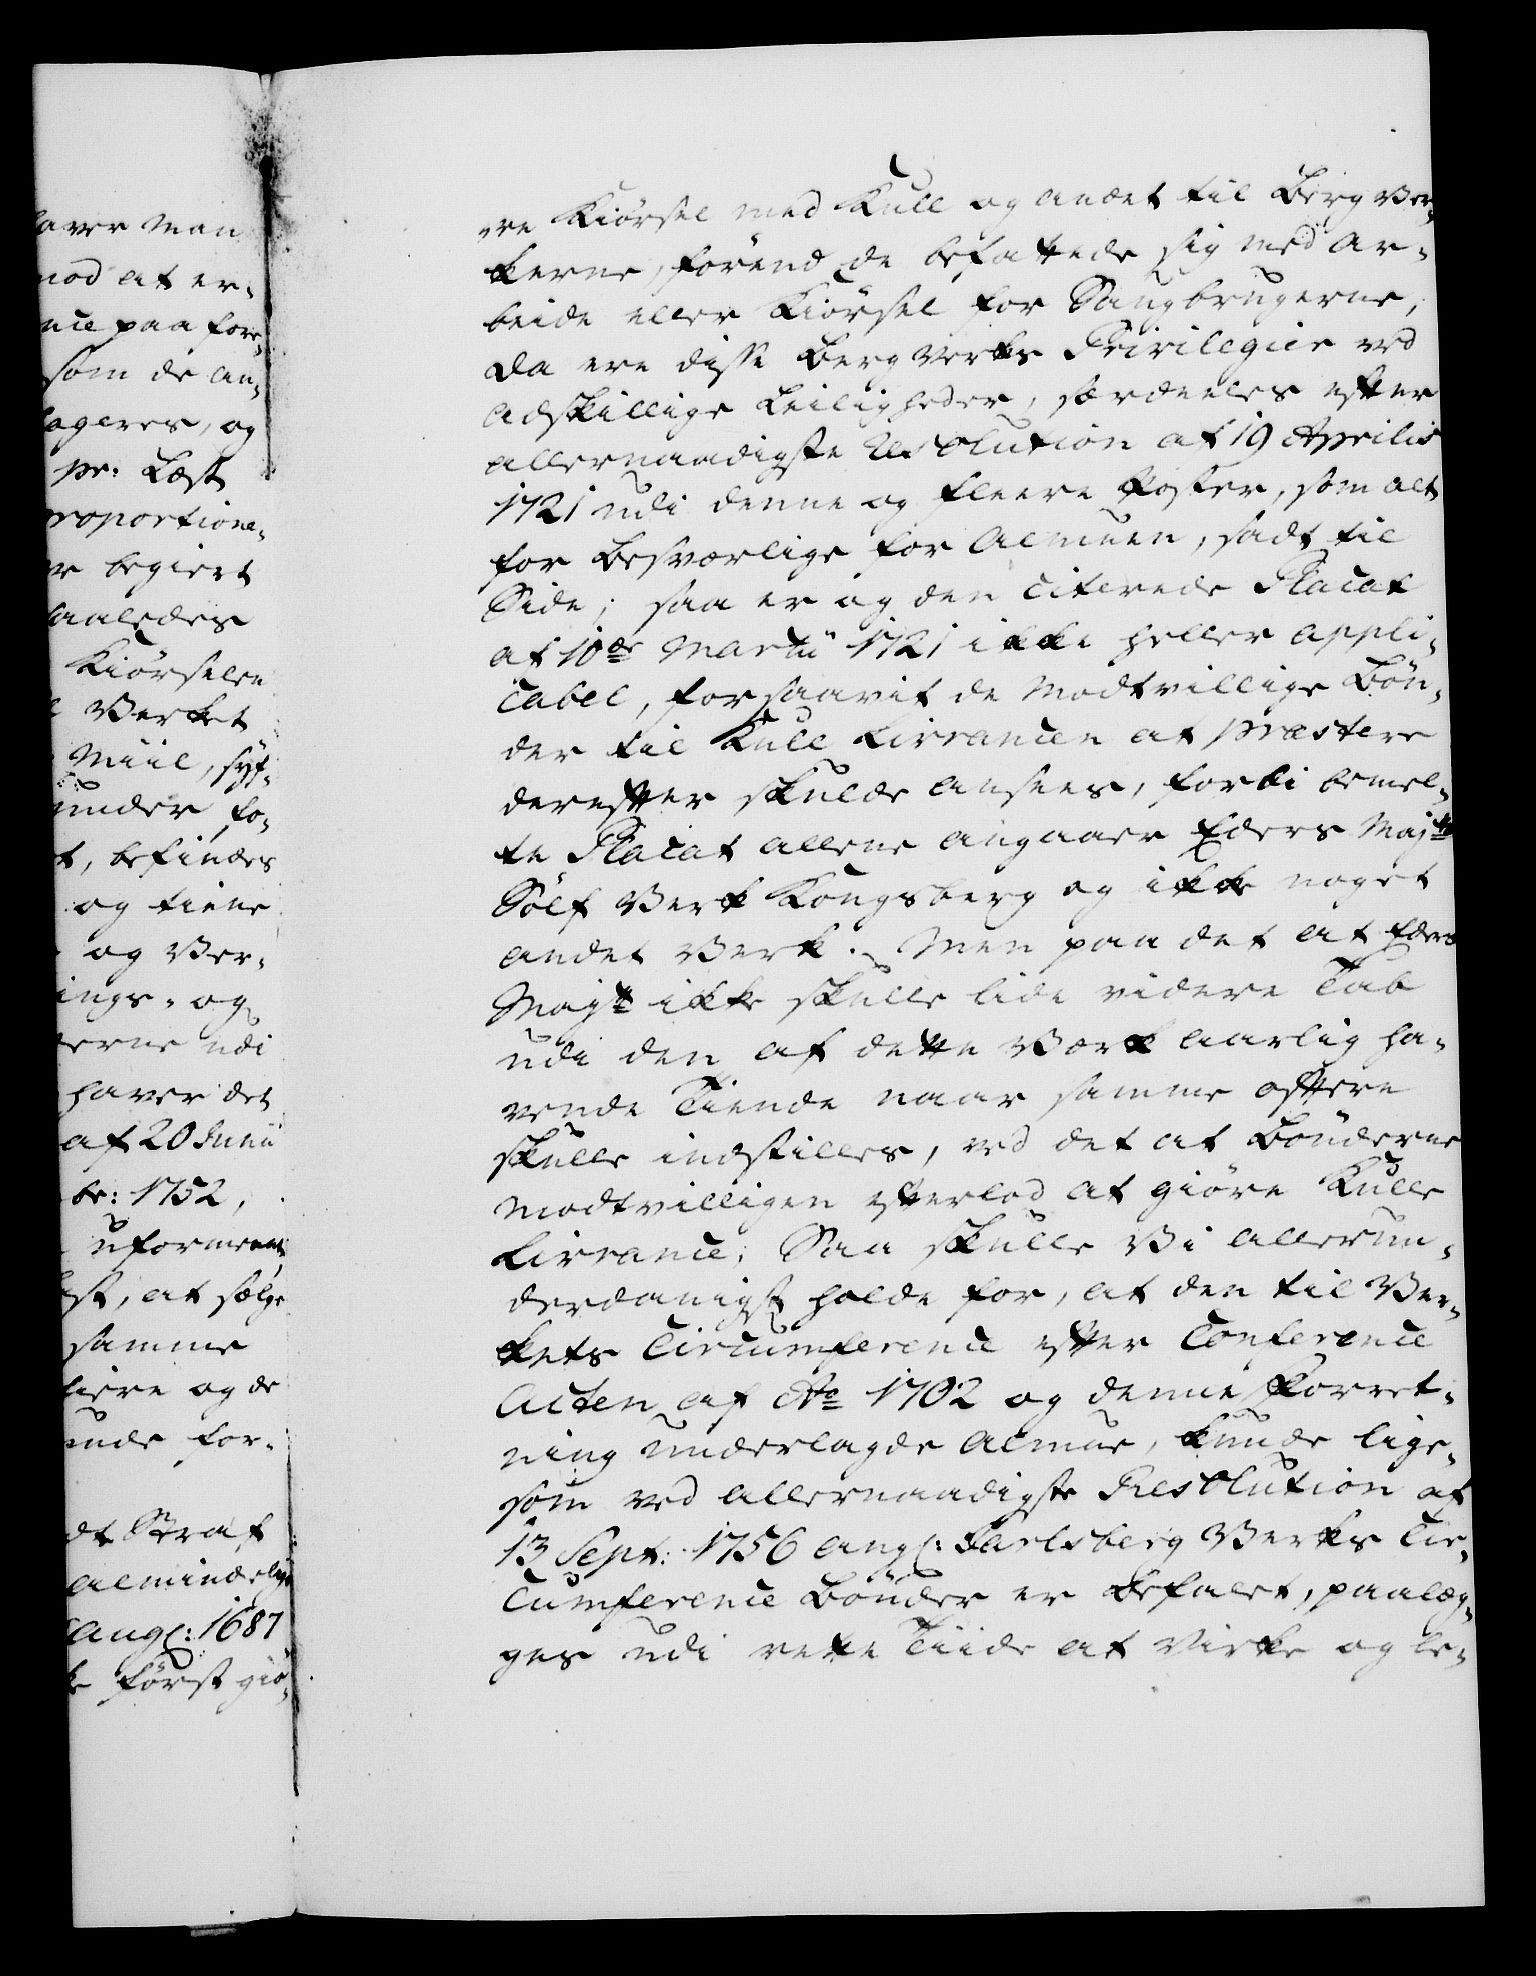 laver Man
mod at er-
nce paa fore-
som de an-
lageres, og
pr: Læst
proportione-
er begiert
saaledes
Kiörselen
Verket
Miil, syf-
under, fo-
t, befindes
og tiene
og Ver-
ings- og
erne udi
haver det
af 20 Junii
br: 1752,
uformeent
st, at sælge
samme
hiere og de
unde for-
dt Straf
almindelig
ang: 1687
k först giö-
re Kiörsel med Kull og andet til Berg Ver-
kerne, förend de befattede sig med Ar-
beide eller Kiörsel for Saugbrugerne,
da ere disse Bergverks Privilegier ved
adskillige Leiligheder, særdeeles efter
allernaadigste Resolution af 19 Aprilis
1721 udi denne og fleere Poster, som alt
for besværlige for Almuen, sadt til
Side; saa er og den citerede Placat
af 10de Martii 1721 ikke heller appli-
cabel, forsaavit de Modtvillige Bön-
der til Kull Livrancen at præstere
derefter skulde ansees, fordi bemel-
te Placat allene angaaer Eders Majts
Sölf Verk Kongsberg og ikke noget
andet Verk. Men paa det at Eders
Majt ikke skulle lide videre Tab
udi den af dette Verk aarlig ha-
vende Tiende naar samme oftere
skulle indstilles, ved det at Bönderne
modtvilligen efterlod at giöre Kulle
Livrance; Saa skulle Vi allerun-
derdanigst holde for, at den til Ver-
kets Circumference efter Conference
Acten af Ao 1702 og denne Forret-
ning underlagde Almue, kunde lige-
som ved allernaadigste Resolution af
13 Sept: 1756 ang: Carlsberg Verks Cir-
cumference Bönder er befalet, paalæg-
ges udi rette Tiide at virke og le-